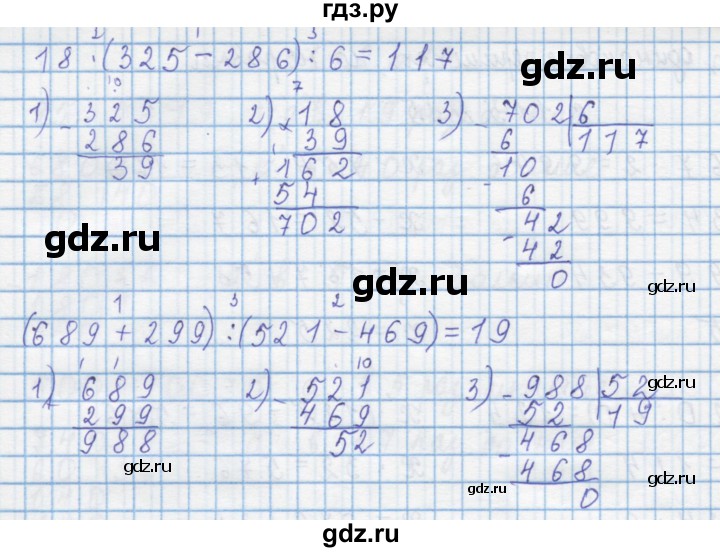 гдз.ру
2 1 3
18 · (325 - 286) : 6 = 117
1) 10 2) 7 3)
- 325 × 18 - 702 | 6
286 39 6 117
39 1
+ 162 - 10
54 6
702 - 42
42
0
gdz.ru
gdz.ru
gdz.ru
gdz.ru
gdz.ru
1 3 2
(689 + 299) : (521 - 469) = 19
1) 1 1 2) . 10 3)
689 - 521 - 988 | 52
299 469 52 19
988 52 - 468
468
0
gdz.ru
gdz.ru
gdz.ru
gdz.ru
gdz.ru